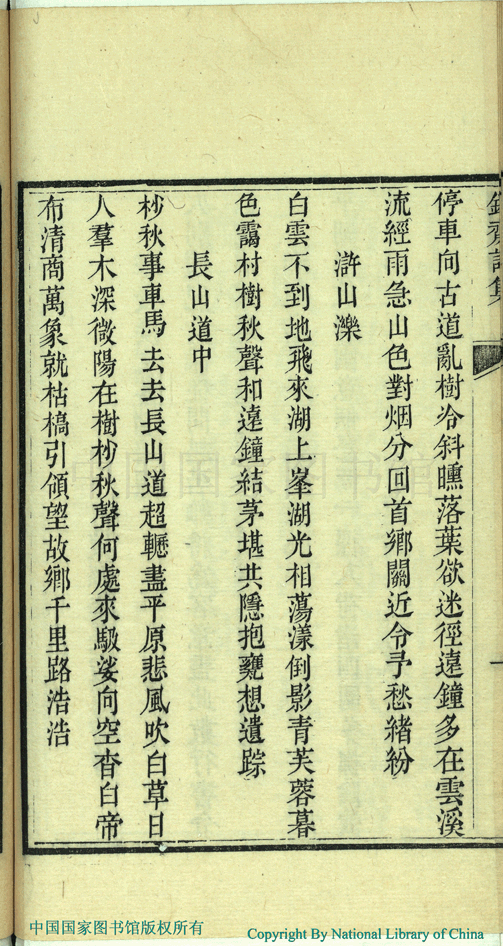 停車向古道亂樹冷斜曛落葉欲迷徑遠鐘多在雲溪
流經雨急山色對烟分回首鄉關近令予愁緒紛
滸山濼
白雲不到地飛來湖上峯湖光相蕩漾倒影青芙蓉暮
色靄村樹秋聲和遠鐘結茅堪共隱抱甕想遺踪
長山道中
杪秋事車馬去去長山道超轣盡平原悲風吹白草日
人羣木深微陽在樹杪秋聲何處來馺娑向空杳白帝
布清商萬象就枯槁引領望故鄉千里路浩浩
中国国家图书馆
中国国家图书馆版权所有
Copyright By National Library of China